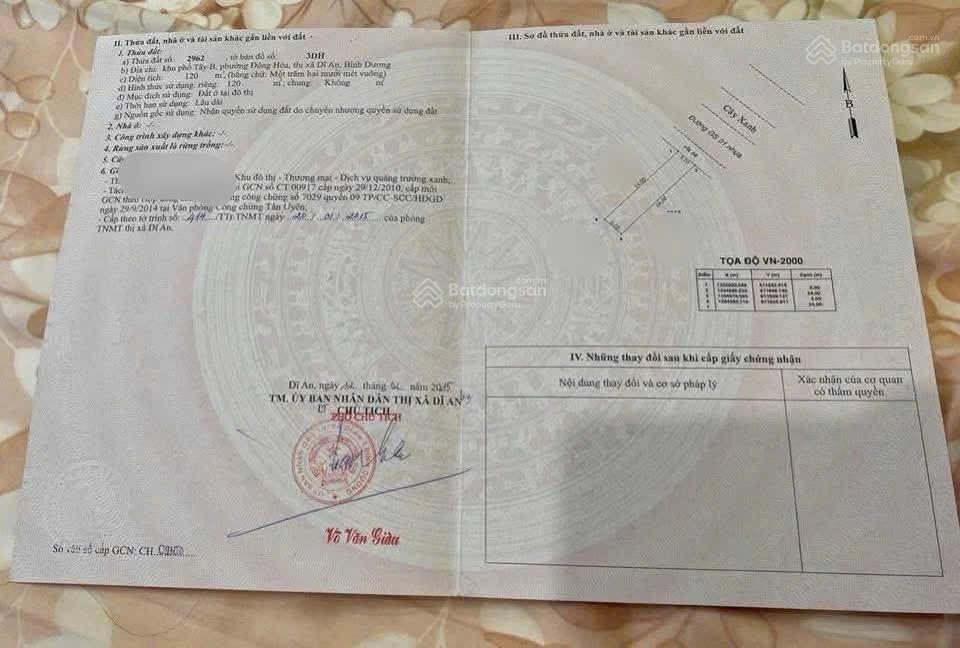 II. Thửa đất, nhà ở và tài sản khác gắn liền với đất
1. Thửa đất:
a) Thửa đất số: 2962 , tờ bản đồ số: 3DH
b) Địa chỉ: khu phố Tây B, phường Đông Hòa, thị xã Dĩ An, Bình Dương
c) Diện tích: 120 m², (bằng chữ: Một trăm hai mươi mét vuông)
d) Hình thức sử dụng: riêng: 120 m²; chung: Không m²
đ) Mục đích sử dụng: Đất ở tại đô thị
e) Thời hạn sử dụng: Lâu dài
g) Nguồn gốc sử dụng: Nhận quyền sử dụng đất do chuyển nhượng quyền sử dụng đất
2. Nhà ở: -/-
3. Công trình xây dựng khác: -/-
4. Rừng sản xuất là rừng trồng: -/-
5. Cây
6. Gh
Khu đô thị - Thương mại - Dịch vụ quảng trường xanh,
- Tách GCN số CT 00917 cấp ngày 29/12/2010, cấp mới
GCN theo công chứng số 7029 quyển 09 TP/CC-SCC/HĐGD
ngày 29/9/2014 tại Văn phòng Công chứng Tân Uyên;
- Cấp theo tờ trình số: /TTr.TNMT ngày 20 / 01 / 2015 của phòng
TNMT thị xã Dĩ An.
Dĩ An, ngày tháng năm 2015
TM. ỦY BAN NHÂN DÂN THỊ XÃ DĨ AN
CHỦ TỊCH
PHÓ CHỦ TỊCH
Võ Văn Giàu
Số vào sổ cấp GCN: CH
III. Sơ đồ thửa đất, nhà ở và tài sản khác gắn liền với đất
B
Cây Xanh
Đường GS 01 nhựa
5.00
24.00
24.00
5.00
TỌA ĐỘ VN-2000
Điểm X (m) Y (m) Cạnh (m)
1 5.00
2 24.00
3 5.00
4 24.00
IV. Những thay đổi sau khi cấp giấy chứng nhận
Nội dung thay đổi và cơ sở pháp lý
Xác nhận của cơ quan
có thẩm quyền
Batdongsan.com.vn
by PropertyGuru
Batdongsan.com.vn
by PropertyGuru
Batdongsan.com.vn
by PropertyGuru